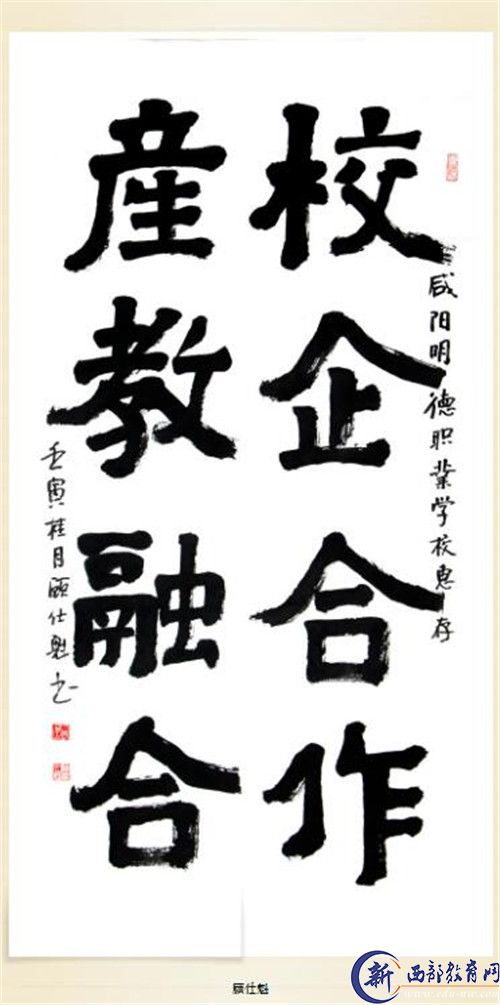 咸阳明德职业学校惠存
校企合作
産教融合
壬寅桂月顾仕魁书
顾仕魁
新西部教育网